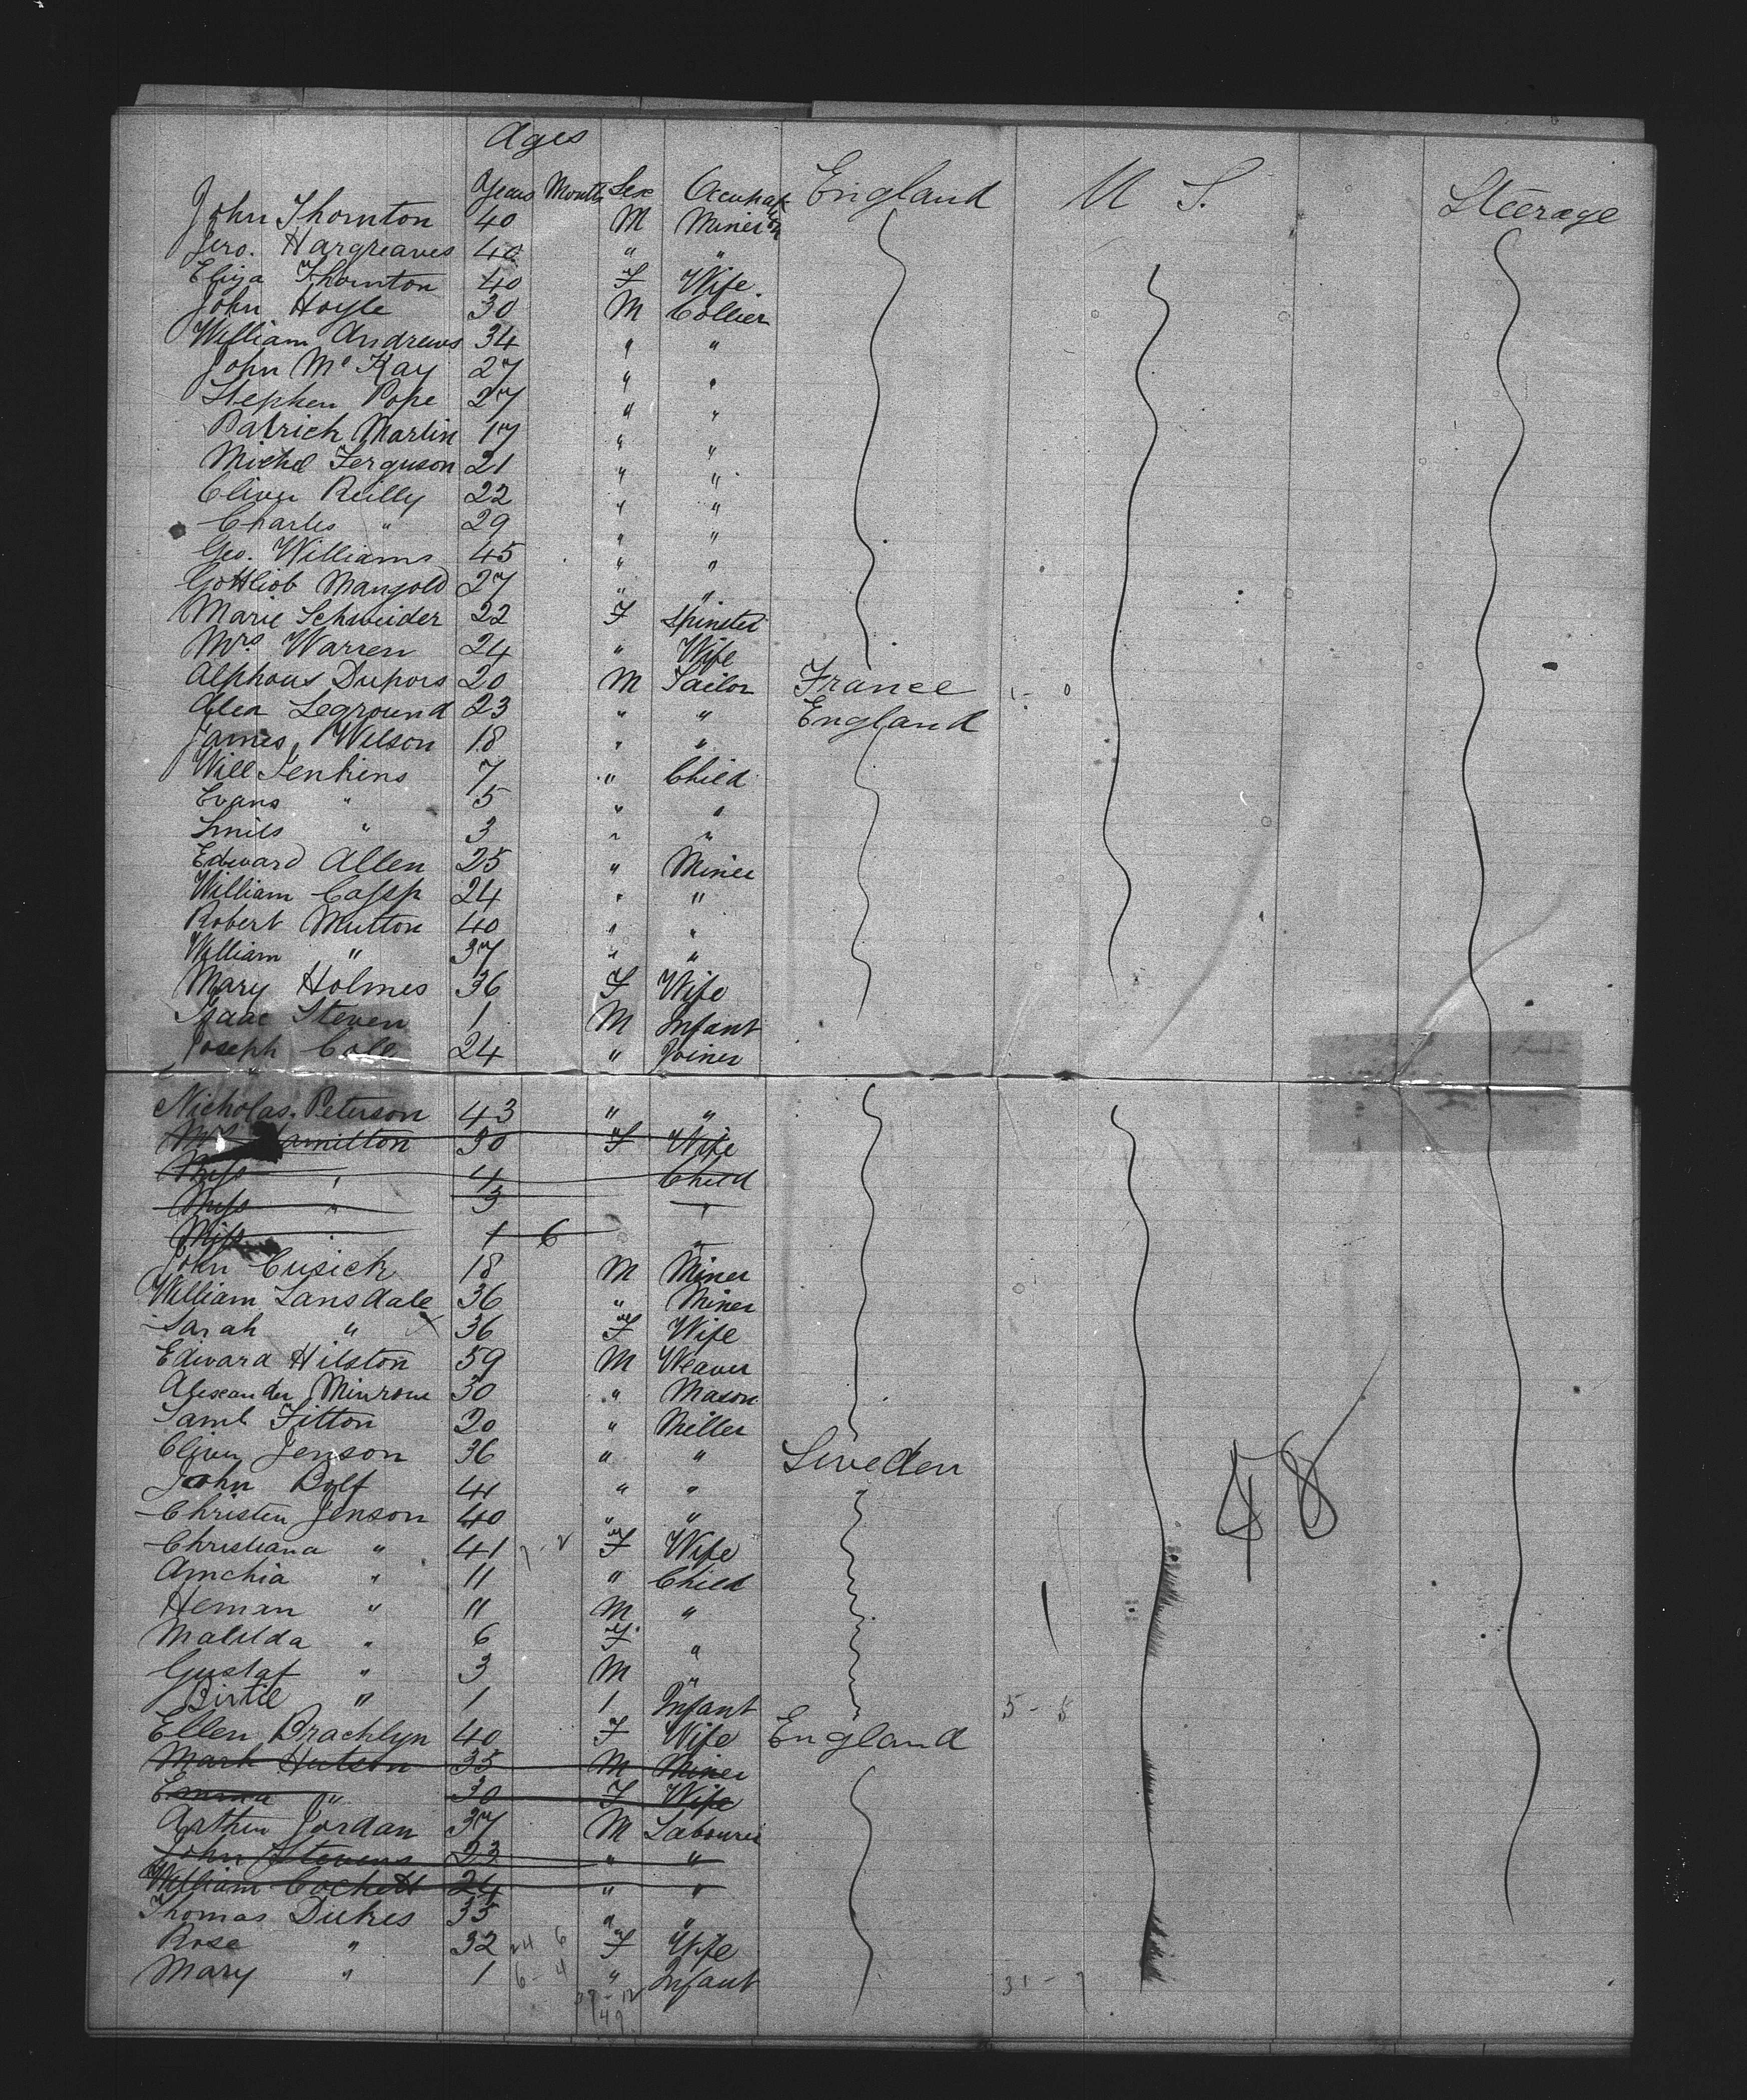 Ages
Years Months Sex Occupation England U S. Steerage
John Thornton 40 M Miner
Jero. Hargreaves 40 " "
Eliza Thornton 40 F Wife
John Hoyle 30 M Collier
William Andrews 34 " "
John Mc Kay 27 " "
Stephen Pope 27 " "
Patrick Martin 17 " "
Michel Ferguson 21 " "
Oliver Reilly 22 " "
Charles " 29 " "
Geo. Williams 45 " "
Gottliob Mangold 27 " "
Marie Schneider 22 F Spinster
Mrs. Warren 24 " Wife
Alphous Dupors 20 M Sailor France
Alea Leground 23 " " England
James Wilson 18 " "
Will Jenkins 7 " Child
Evans " 5 " "
Smils " 3 " "
Edward Allen 25 " Miner
William 24 " "
Robert Mutton 40 " "
William " 37 " "
Mary Holmes 36 F Wife
Isaac Steven 1 M Infant
Joseph Cole 24 " Joiner
Nicholas Peterson 43 " "
Mrs Hamilton 30 F Wife
Miss " 4 Child
Miss " 3 "
Miss " 1 6 "
John Cusick 18 M Miner
William Lansdale 36 " Miner
Sarah " 36 F Wife
Edward Hilston 59 M Weaver
Alexander Minrowe 30 " Mason
Saml Fitton 20 " Miller
Oliver Jenson 36 " " Sweden
John Bolf 41 " "
Christen Jenson 40 " "
Christiana " 41 F Wife
Amchia " 11 " Child
Heman " 11 M "
Matilda " 6 F "
Gustaf " 3 M "
Birtie " 1 1 Infant 5 - 5
Ellen Brachlyn 40 F Wife England
Mark Hutson 35 M Miner
Emma " 30 F Wife
Arthur Jordan 37 M Labourer
John Stevens 23 " "
William Cockett 24 " "
Thomas Dukes 35 " "
Rose " 32 24 6 F Wife
Mary " 1 6 - 4 " Infant 31 - 7
37 - 12
49
48